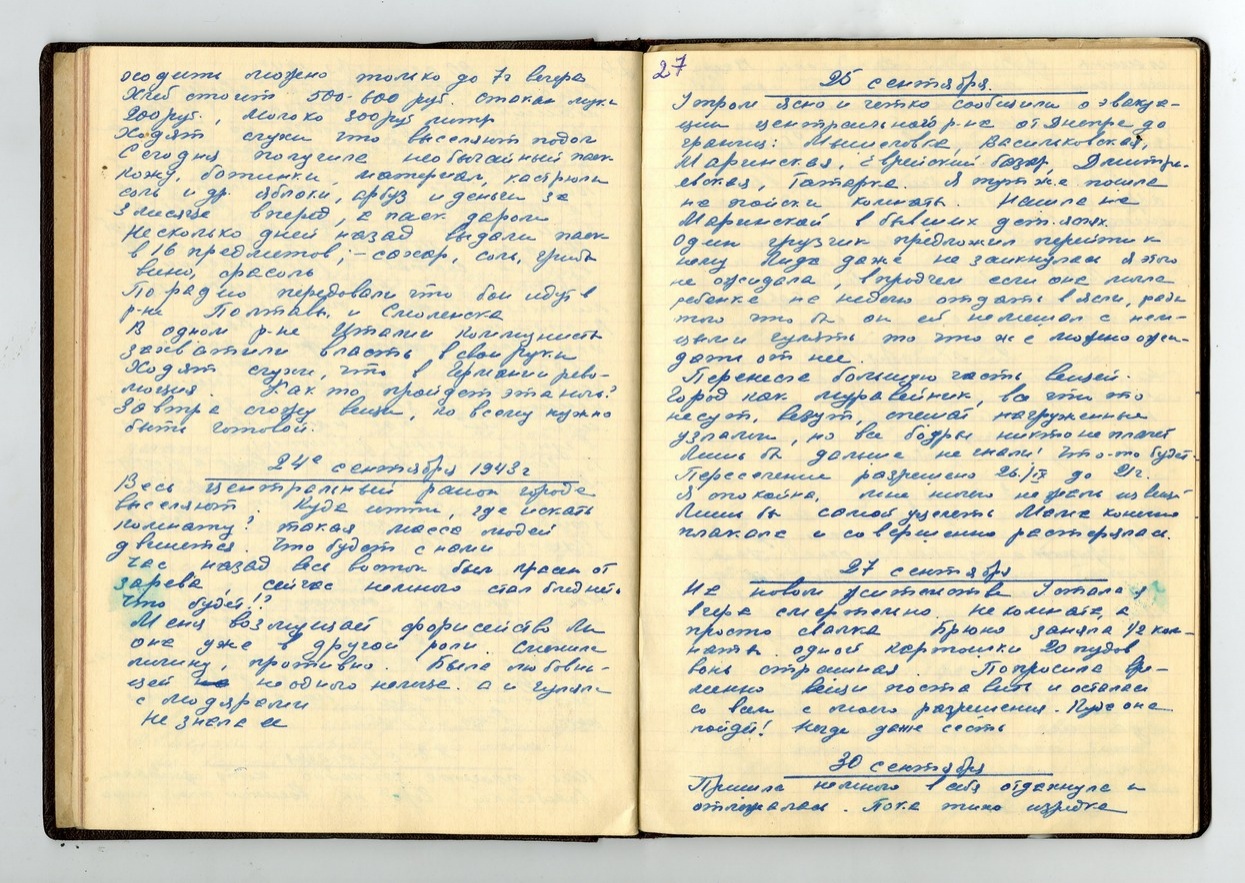 ходить можно только до 7ч вечера
Хлеб стоит 500-600 руб. стакан муки
200 руб., молоко 300 руб литр
Ходят слухи что выселяют Подол
Сегодня получила необычайный паек
кожу, ботинки, материал, кастрюли
соль и др. яблоки, арбуз и деньги за
3 месяца вперед, а паек даром
Несколько дней назад выдали паек
в 16 предметов, - сахар, соль, грибы
вино, фасоль
По радио передовали что бои идут в
р-не Полтавы и Смоленска
В одном р-не Италии коммунисты
захватили власть в свои руки
Ходят слухи, что в Германии рево-
люция. Как то пройдет эта ночь?
Завтра сложу вещи, ко всему нужно
быть готовой.
24го сентября 1943г
Весь центральный район города
выселяют. Куда итти, где искать
комнату? такая масса людей
двинется. Что будет с нами
Час назад весь восток был красен от
зарева, сейчас немного стал бледней.
Что будет!?
Меня возмущает форисейство Ли
она уже в другой роли. Сменила
личину, противно. Была любовни-
цей не одного немца. а и гуляла
с мадярами
Не знала ее
27
25 сентября.
Утром ясно и четко сообщили о эвакуа-
ции центральной р-на от Днепра до
границ: Мышеловка, Васильковская,
Маринская, Еврейский базар, Дмитри-
евская, Татарка. Я тут же пошла
на поиски комнаты. Нашла на
Маринской в бывших дет. яслях
Один грузчик предложил перейти к
нему Лида даже не заикнулась я этого
не ожидала, впрочем если она могла
ребенка на неделю отдать в ясли, ради
того что б он ей не мешал с нем-
цами гулять то что же можно ожи-
дать от нее.
Перенесла большую часть вещей.
Город как муравейник, все что то
несут, везут, спешат нагруженные
узлами, но все бодры никто не плачет
Лишь бы дальше не гнали! Что-то будет-
Переселение разрешено 26/IX до 21г.
Я спокойна, мне ничего не жаль из вещей
Лишь бы самой уцелеть Мама конечно
плакала и совершенно растерялась.
27 сентября
На новом жительстве Устала я
вчера смертельно. не комната, а
просто свалка Брюно заняла 1/2 ком-
наты. одной картошки 20 пудов
вонь страшная. Попросила вре-
менно вещи поставить и осталась
со всем с моего разрешения. Пусть она
пойдет! Негде даже сесть
30 сентября
Пришла немного в себя отдохнула и
отлежалась. Пока тихо изредка